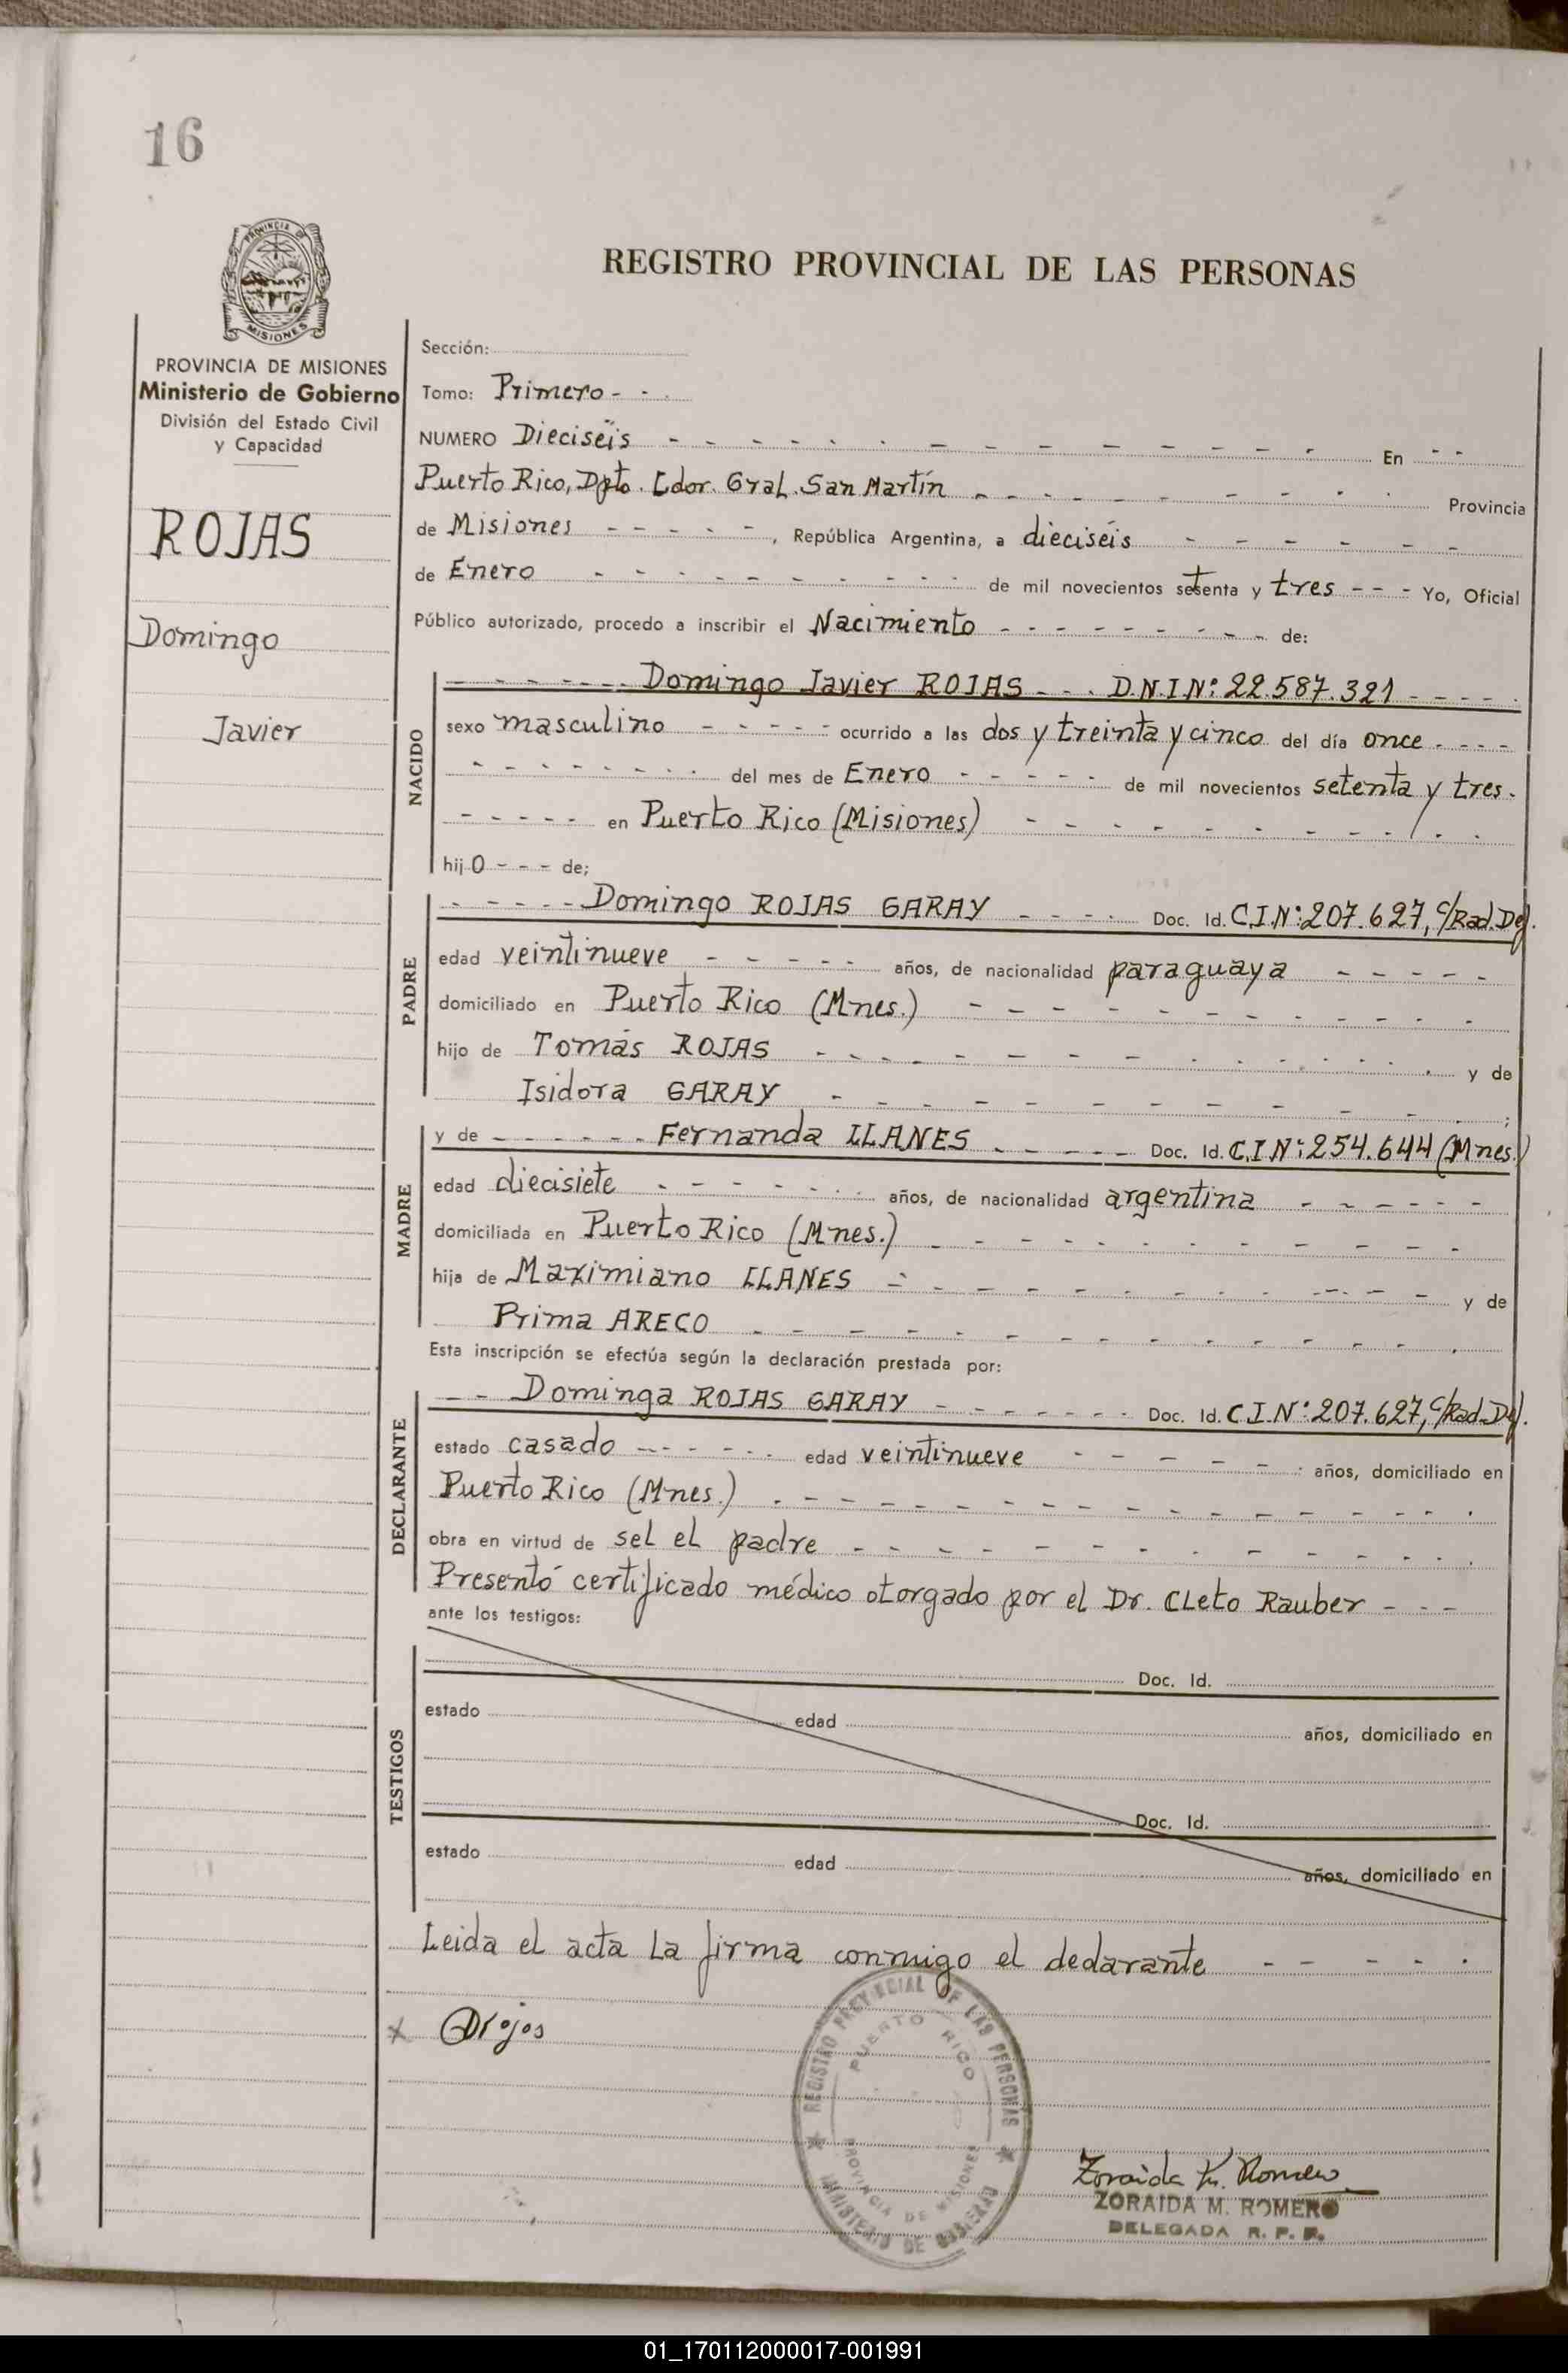 16
PROVINCIA DE
MISIONES
PROVINCIA DE MISIONES
Ministerio de Gobierno
División del Estado Civil
y Capacidad
ROJAS
Domingo
Javier
REGISTRO PROVINCIAL DE LAS PERSONAS
Sección:
Tomo: Primero - - .
NUMERO Dieciséis - - - - - - - - - - - - En - -
Puerto Rico, Dpto. Ldor. Gral. San Martín - - - - - - - - - Provincia
de Misiones - - - - -, República Argentina, a dieciséis - - - - - -
de Enero - - - - - - - - - de mil novecientos setenta y tres - - - Yo, Oficial
Público autorizado, procedo a inscribir el Nacimiento - - - - - - - - - de:
NACIDO
- - - - - - Domingo Javier ROJAS - - - D.N.I Nº: 22.587.321 - - - -
sexo masculino - - - - - ocurrido a las dos y treinta y cinco del día once - - - -
- - - - - - - - - del mes de Enero - - - - - de mil novecientos setenta y tres.
- - - - - en Puerto Rico (Misiones) - - - - - - - - - -
hijO - - - de;
PADRE
- - - - - Domingo ROJAS GARAY - - - - Doc. Id. C.I.Nº: 207.627, c/Rad. Def.
edad veintinueve - - - - - años, de nacionalidad paraguaya - - - - -
domiciliado en Puerto Rico (Mnes.) - - - - - - - - - -
hijo de Tomás ROJAS - - - - - - - - - - - y de
Isidora GARAY - - - - - - - - - - ;
MADRE
y de - - - - - - Fernanda LLANES - - - - - Doc. Id. C.I Nº: 254.644 (Mnes.)
edad diecisiete - - - - - - - años, de nacionalidad argentina - - - - - -
domiciliada en Puerto Rico (Mnes.) - - - - - - - - - - -
hija de Maximiano LLANES - - - - - - - - - - - y de
Prima ARECO - - - - - - - - - - - - -
Esta inscripción se efectúa según la declaración prestada por:
DECLARANTE
- - Dominga ROJAS GARAY - - - - - - - Doc. Id. C.I.Nº: 207.627, c/Rad. Def.
estado casado - - - - - - edad veintinueve - - - - - - años, domiciliado en
Puerto Rico (Mnes.) - - - - - - - - - - - - - - - -
obra en virtud de sel el padre - - - - - - - - - - - - -
Presentó certificado médico otorgado por el Dr. Cleto Rauber - - -
ante los testigos:
TESTIGOS
Doc. Id.
estado edad años, domiciliado en
Doc. Id.
estado edad años, domiciliado en
Leida el acta la firma conmigo el declarante - - - - - .
x DRojas
REGISTRO PROVINCIAL DE LAS PERSONAS
PUERTO RICO
PROVINCIA DE MISIONES
MINISTERIO DE GOBIERNO
Zoraida M. Romero
ZORAIDA M. ROMERO
DELEGADA R. P. P.
01_170112000017-001991